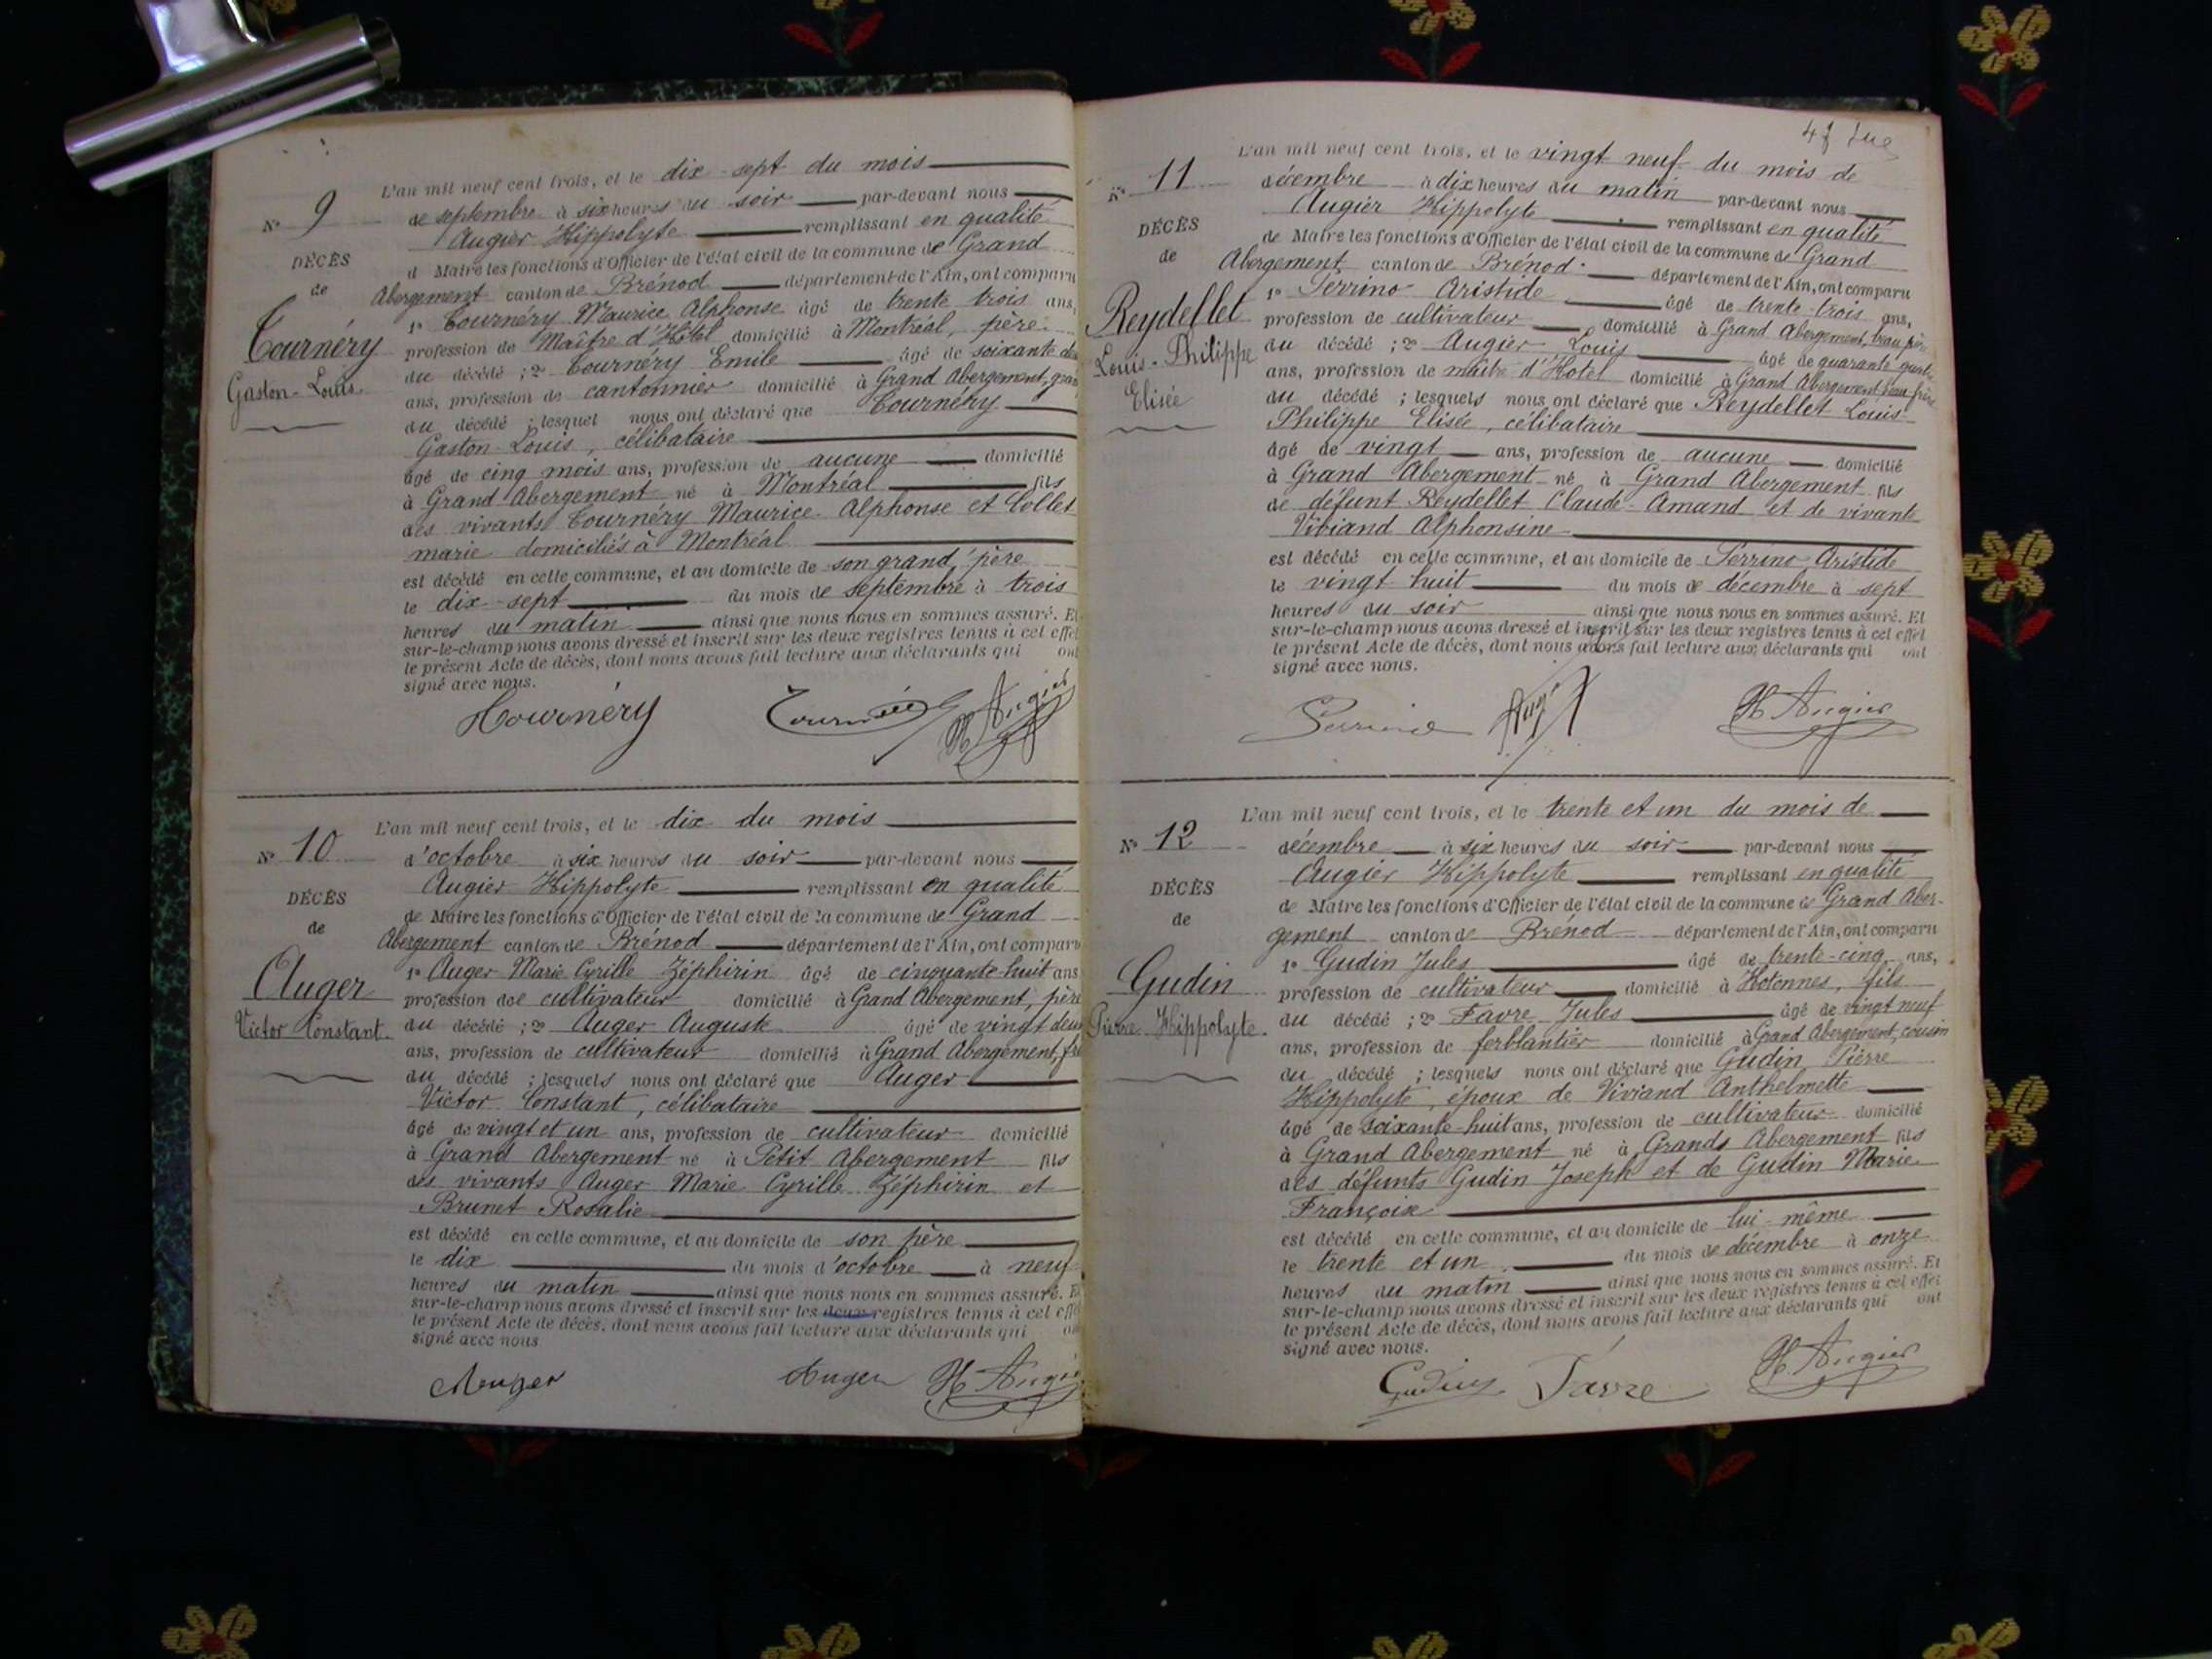 L'an mil neuf cent trois, et le dix-sept du mois
N° 9
de septembre à six heures du soir par-devant nous
Augier Hippolyte remplissant en qualité
DÉCÈS
d Maire les fonctions d'Officier de l'état civil de la commune de Grand
de
Abergement canton de Brénod département de l'Ain, ont comparu
1° Tournéry Maurice Alphonse âgé de trente trois ans,
Tournéry
profession de Maître d'Hôtel domicilié à Montréal, père
du décédé ; 2° Tournéry Emile âgé de soixante
Gaston-Louis
ans, profession de cantonnier domicilié à Grand Abergement,
du décédé ; lesquel nous ont déclaré que Tournéry
Gaston-Louis, célibataire
âgé de cinq mois ans, profession de aucune domicilié
à Grand Abergement né à Montréal fils
des vivants Tournéry Maurice-Alphonse et Collet
marie domiciliés à Montréal
est décédé en cette commune, et au domicile de son grand'père
le dix-sept du mois de septembre à trois
heures du matin ainsi que nous nous en sommes assuré. Et
sur-le-champ nous avons dressé et inscrit sur les deux registres tenus à cet effet
le présent Acte de décès, dont nous avons fait lecture aux déclarants qui ont
signé avec nous.
Tournéry Tournéry H. Augier
L'an mil neuf cent trois, et le dix du mois
N° 10
d'octobre à six heures du soir par-devant nous
Augier Hippolyte remplissant en qualité
DÉCÈS
de Maire les fonctions d'Officier de l'état civil de la commune de Grand
de
Abergement canton de Brénod département de l'Ain, ont comparu
1° Auger Marie Cyrille Zéphirin âgé de cinquante-huit ans
Auger
profession de cultivateur domicilié à Grand Abergement, père
Victor Constant
du décédé ; 2° Auger Auguste âgé de vingt deux
ans, profession de cultivateur domicilié à Grand Abergement,
du décédé ; lesquels nous ont déclaré que Auger
Victor Constant, célibataire
âgé de vingt et un ans, profession de cultivateur domicilié
à Grand Abergement né à Petit Abergement fils
des vivants Auger Marie Cyrille Zéphirin et
Brunet Rosalie
est décédé en cette commune, et au domicile de son père
le dix du mois d'octobre à neuf
heures du matin ainsi que nous nous en sommes assuré. Et
sur-le-champ nous avons dressé et inscrit sur les deux registres tenus à cet effet
le présent Acte de décès, dont nous avons fait lecture aux déclarants qui ont
signé avec nous
Auger Auger H. Augier
L'an mil neuf cent trois, et le vingt neuf du mois de
N° 11
décembre à dix heures du matin par-devant nous
Augier Hippolyte remplissant en qualité
DÉCÈS
de Maire les fonctions d'Officier de l'état civil de la commune de Grand
de
Abergement canton de Brénod département de l'Ain, ont comparu
1° Perrino Aristide âgé de trente-trois ans,
Reydellet
profession de cultivateur domicilié à Grand Abergement, beau père
du décédé ; 2° Augier Louis âgé de quarante quatre
Louis-Philippe
ans, profession de maître d'Hotel domicilié à Grand Abergement beau frère
Elisée
du décédé ; lesquels nous ont déclaré que Reydellet Louis
Philippe Elisée, célibataire
âgé de vingt ans, profession de aucune domicilié
à Grand Abergement né à Grand Abergement fils
de défunt Reydellet Claude-Amand et de vivante
Viviand Alphonsine
est décédé en cette commune, et au domicile de Perrino Aristide
le vingt huit du mois de décembre à sept
heures du soir ainsi que nous nous en sommes assuré. Et
sur-le-champ nous avons dressé et inscrit sur les deux registres tenus à cet effet
le présent Acte de décès, dont nous avons fait lecture aux déclarants qui ont
signé avec nous.
Perrino H. Augier
L'an mil neuf cent trois, et le trente et un du mois de
N° 12
décembre à six heures du soir par-devant nous
Augier Hippolyte remplissant en qualité
DÉCÈS
de Maire les fonctions d'Officier de l'état civil de la commune de Grand Aber-
de
gement canton de Brénod département de l'Ain, ont comparu
1° Gudin Jules âgé de trente-cinq ans,
Gudin
profession de cultivateur domicilié à Hotonnes, fils
du décédé ; 2° Favre Jules âgé de vingt neuf
Pierre Hippolyte
ans, profession de ferblantier domicilié à Grand Abergement, cousin
du décédé ; lesquels nous ont déclaré que Gudin Pierre
Hippolyte, époux de Viviand Anthelmette
âgé de soixante-huit ans, profession de cultivateur domicilié
à Grand Abergement né à Grand Abergement fils
des défunts Gudin Joseph et de Gudin Marie
Françoise
est décédé en cette commune, et au domicile de lui-même
le trente et un du mois de décembre à onze
heures du matin ainsi que nous nous en sommes assuré. Et
sur-le-champ nous avons dressé et inscrit sur les deux registres tenus à cet effet
le présent Acte de décès, dont nous avons fait lecture aux déclarants qui ont
signé avec nous.
Gudin Favre H. Augier